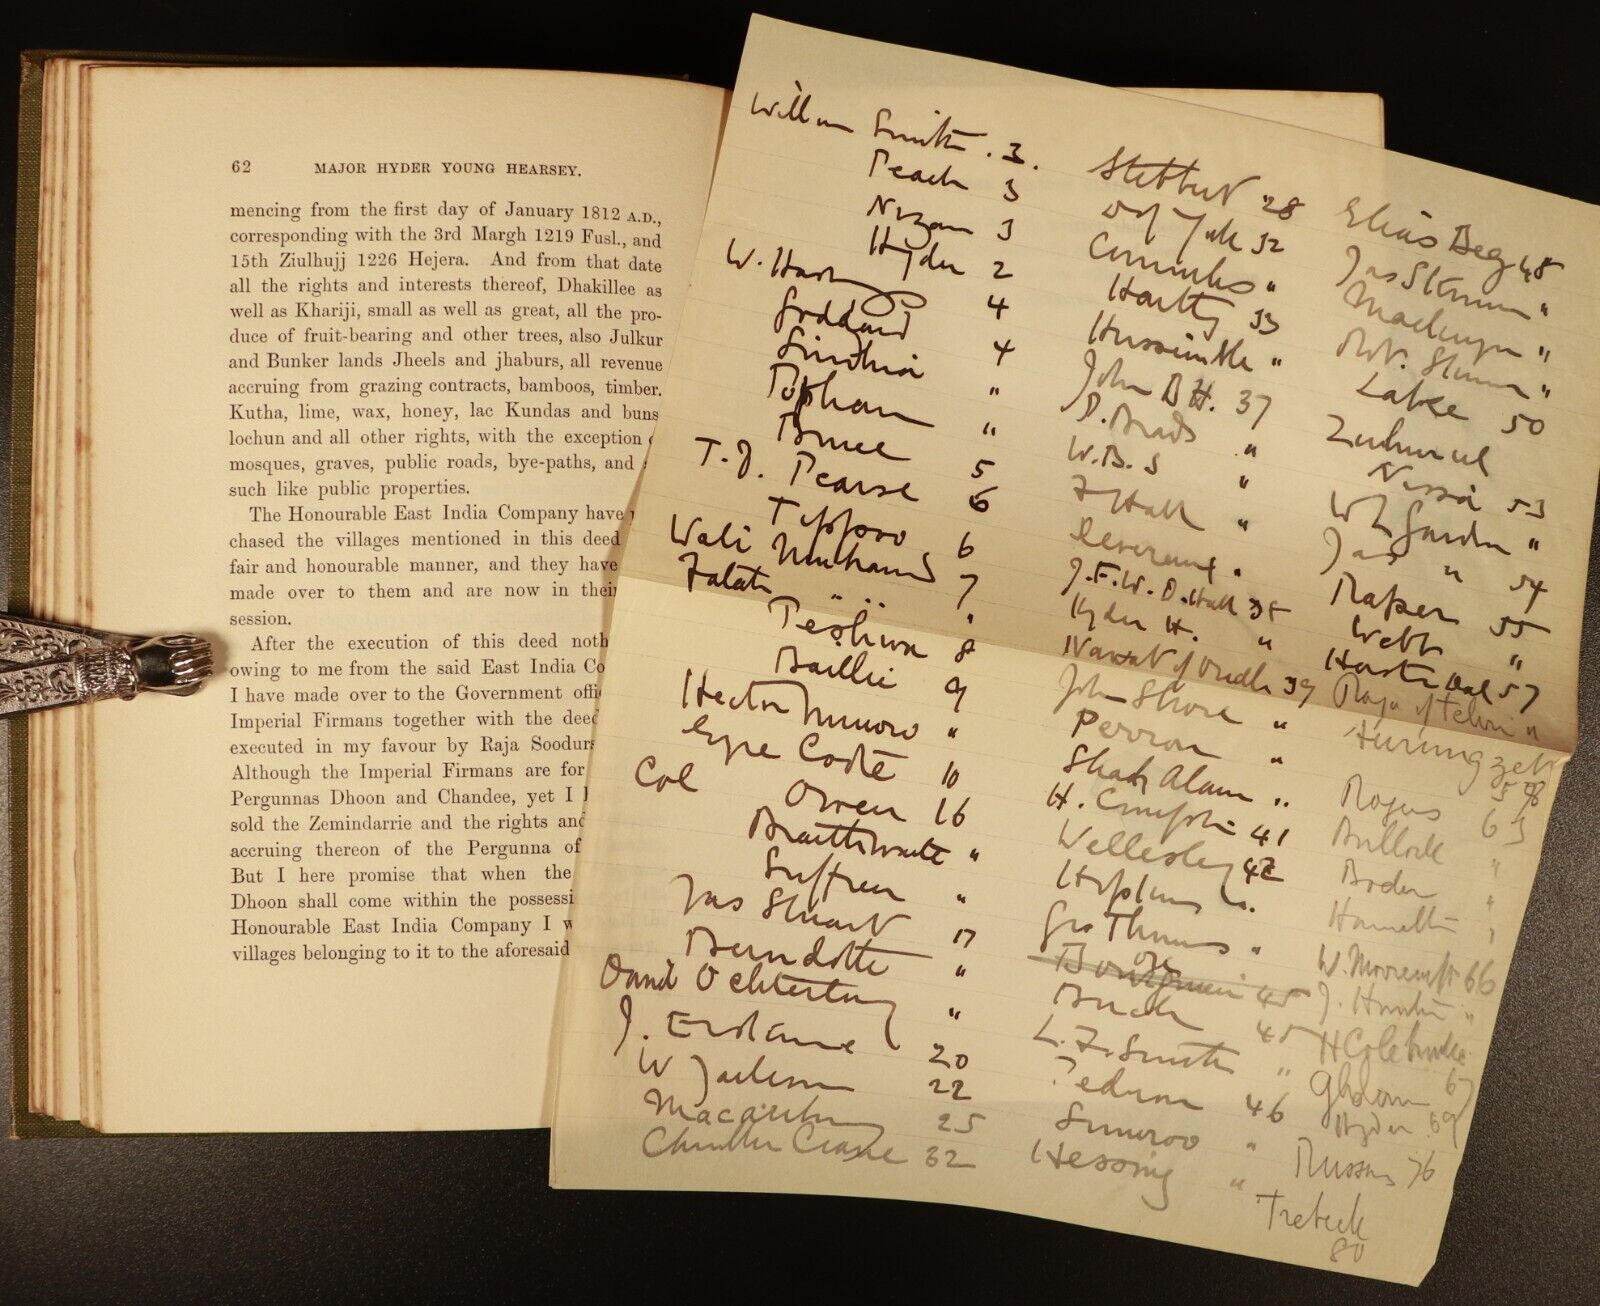 62 MAJOR HYDER YOUNG HEARSEY.
mencing from the first day of January 1812 A.D.,
corresponding with the 3rd Margh 1219 Fusl., and
15th Ziulhujj 1226 Hejera. And from that date
all the rights and interests thereof, Dhakillee as
well as Khariji, small as well as great, all the pro-
duce of fruit-bearing and other trees, also Julkur
and Bunker lands Jheels and jhaburs, all revenue
accruing from grazing contracts, bamboos, timber.
Kutha, lime, wax, honey, lac Kundas and buns
lochun and all other rights, with the exception
mosques, graves, public roads, bye-paths, and
such like public properties.
The Honourable East India Company have
chased the villages mentioned in this deed
fair and honourable manner, and they have
made over to them and are now in thei
session.
After the execution of this deed noth
owing to me from the said East India Co
I have made over to the Government offi
Imperial Firmans together with the deed
executed in my favour by Raja Soodur
Although the Imperial Firmans are for
Pergunnas Dhoon and Chandee, yet I
sold the Zemindarrie and the rights and
accruing thereon of the Pergunna of
But I here promise that when the
Dhoon shall come within the possessi
Honourable East India Company I w
villages belonging to it to the aforesaid
William Smith . 3.
Peach 3
Nizam 3
Hyder 2
W. 4
Goddard 4
Sindhia "
Popham "
Bruce 5
T. D. Pearse 6
Tippoo 6
Wali Muhamad 7
" " "
Peshwa 8
Baillie 9
Hector Munro "
Eyre Coote 10
Col Owen 16
Braithwaite "
Suffren "
Jas Stuart 17
Berndotte "
David Ochterlony "
J. Erskine 20
W Jackson 22
25
32
Stibbert 28
D of York 32
"
33
"
John B H. 37
D. "
W. B. S "
Hall "
Devereux "
J. F. W. D. Hall 38
Hyder H. "
Nawab of Oudh 39
John Shore "
Perron "
Shah Alam "
H. Compton 41
Wellesley 42
Hopkins "
Geo Thomas "
45
45
L. F. Smith "
Pedron 46
Sumroo "
Hessing "
Elias Beg 48
Jas Skinner "
"
Rob. Skinner "
Lake 50
Zuhurul
Nissa 53
W L Gardner "
Jas " 54
Raper 55
Webb "
57
Raja of Tehri "
58
Rogers 63
Bullock "
"
Hamilton "
W. Moorcroft 66
J. Hunter "
H Colebrooke
67
Gholam
Hyder 69
76
Trebeck
80